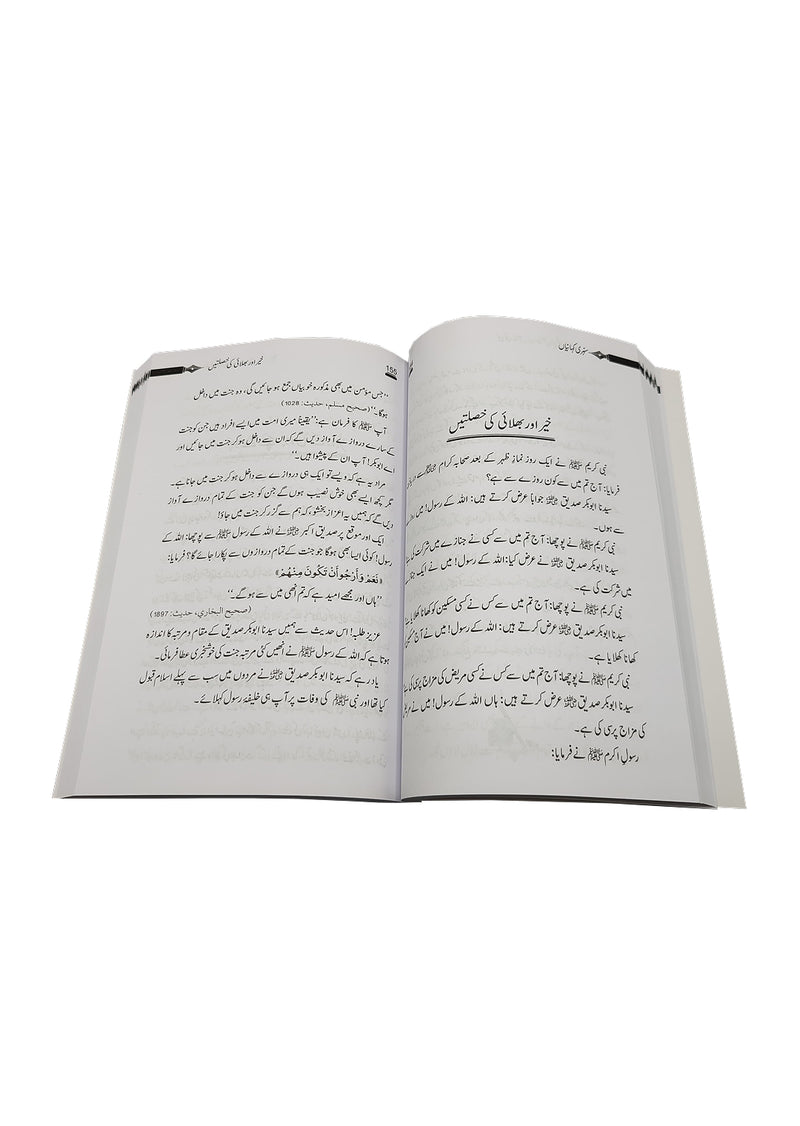 سنہری کہانیاں
خیر اور بھلائی کی خصلتیں
نبی کریم ﷺ نے ایک روز نمازِ ظہر کے بعد صحابہ کرام
فرمایا: آج تم میں سے کون روزے سے ہے؟
سیدنا ابوبکر صدیق رضی اللہ عنہ جواباً عرض کرتے ہیں: اللہ کے رسول! میں روزے
سے ہوں۔
نبی کریم ﷺ نے پوچھا: آج تم میں سے کسی نے جنازے میں شرکت کی
سیدنا ابوبکر صدیق رضی اللہ عنہ نے عرض کیا: اللہ کے رسول! میں نے ایک
میں شرکت کی ہے۔
نبی کریم ﷺ نے پوچھا: آج تم میں سے کس نے کسی مسکین کو کھانا کھلایا
سیدنا ابوبکر صدیق رضی اللہ عنہ عرض کرتے ہیں: اللہ کے رسول! میں نے آج
کھانا کھلایا ہے۔
نبی کریم ﷺ نے پوچھا: آج تم میں سے کس نے کسی مریض کی مزاج پرسی کی
سیدنا ابوبکر صدیق رضی اللہ عنہ عرض کرتے ہیں: ہاں اللہ کے رسول! میں نے
کی مزاج پرسی کی ہے۔
رسولِ اکرم ﷺ نے فرمایا:
خیر اور بھلائی کی خصلتیں 155
''جس مؤمن میں بھی مذکورہ خوبیاں جمع ہو جائیں گی، وہ جنت میں داخل
ہوگا۔'' (صحیح مسلم، حدیث: 1028)
آپ ﷺ کا فرمان ہے: ''یقیناً میری امت میں ایسے افراد ہیں جن کو جنت
کے سارے دروازے آواز دیں گے کہ ان سے داخل ہو کر جنت میں جائیں اور
اے ابوبکر! آپ ان کے پیشوا ہیں۔''
مراد یہ ہے کہ ویسے تو ایک ہی دروازے سے داخل ہو کر جنت میں جانا ہے۔
مگر کچھ ایسے بھی خوش نصیب ہوں گے جن کو جنت کے تمام دروازے آواز
دیں گے کہ ہمیں یہ اعزاز بخشو، کہ ہم سے گزر کر جنت میں جاؤ!
ایک اور موقع پر صدیق اکبر رضی اللہ عنہ نے اللہ کے رسول ﷺ سے پوچھا: اللہ کے
رسول! کوئی ایسا بھی ہوگا جو جنت کے تمام دروازوں سے پکارا جائے گا؟ فرمایا:
«نَعَمْ وَأَرْجُو أَنْ تَكُونَ مِنْهُمْ»
''ہاں اور مجھے امید ہے کہ تم انھی میں سے ہو گے۔''
(صحیح البخاري، حدیث: 1897)
عزیز طلبہ! اس حدیث سے ہمیں سیدنا ابوبکر صدیق کے مقام و مرتبہ کا اندازہ
ہوتا ہے کہ اللہ کے رسول ﷺ نے انھیں کئی مرتبہ جنت کی خوشخبری عطا فرمائی۔
یاد رہے کہ سیدنا ابوبکر صدیق رضی اللہ عنہ نے مردوں میں سب سے پہلے اسلام قبول
کیا تھا اور نبی ﷺ کی وفات پر آپ ہی خلیفۂ رسول کہلائے۔